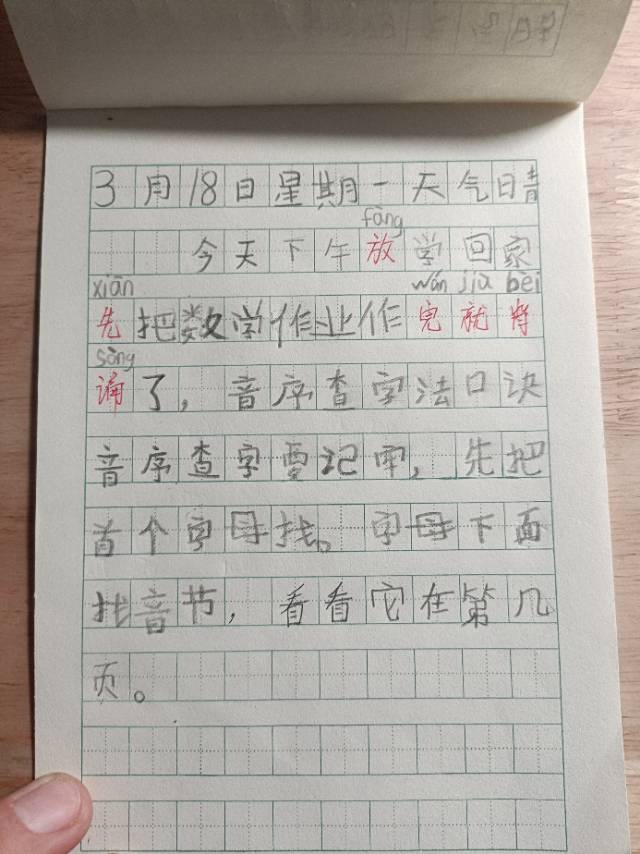 3月18日星期一天气晴
fàng
今天下午放学回家
xiān wán jiù bèi
先把数学作业作完就背
sòng
诵了，音序查字法口诀
音序查字要记牢，先把
首个字母找。字母下面
找音节，看看它在第几
页。